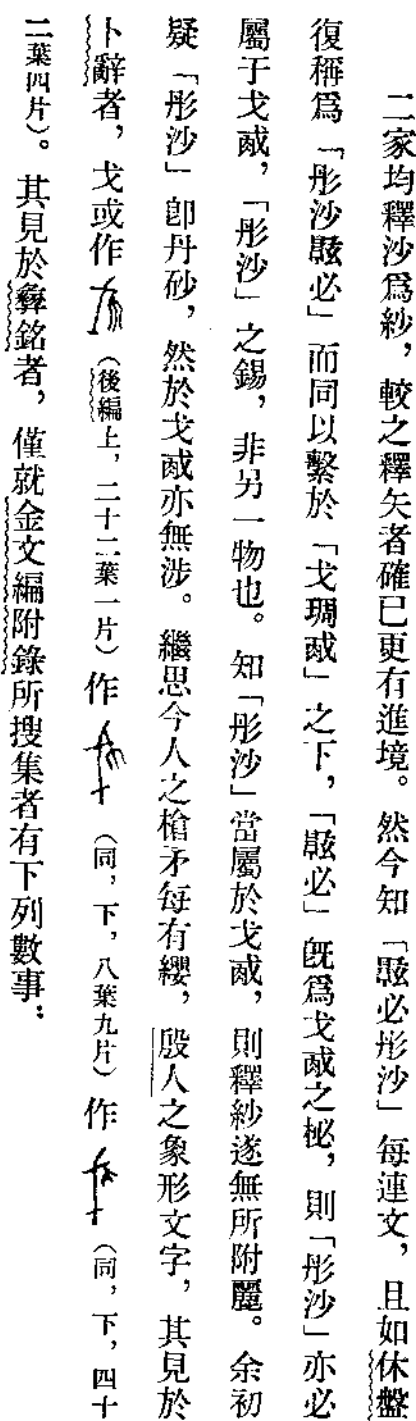 二家均釋沙爲紗，較之釋矢者確已更有進境。然今知「㱃必彤沙」每連文，且如休盤
復稱爲「彤沙㱃必」而同以繫於「戈琱㦰」之下，「㱃必」旣爲戈㦰之柲，則「彤沙」亦必
屬于戈㦰，「彤沙」之錫，非另一物也。知「彤沙」當屬於戈㦰，則釋紗遂無所附麗。余初
疑「彤沙」卽丹砂，然於戈㦰亦無涉。繼思今人之槍矛每有纓，殷人之象形文字，其見於
卜辭者，戈或作（後編上，二十二葉一片）作（同，下，八葉九片）作（同，下，四十
二葉四片）。其見於彝銘者，僅就金文編附錄所搜集者有下列數事：